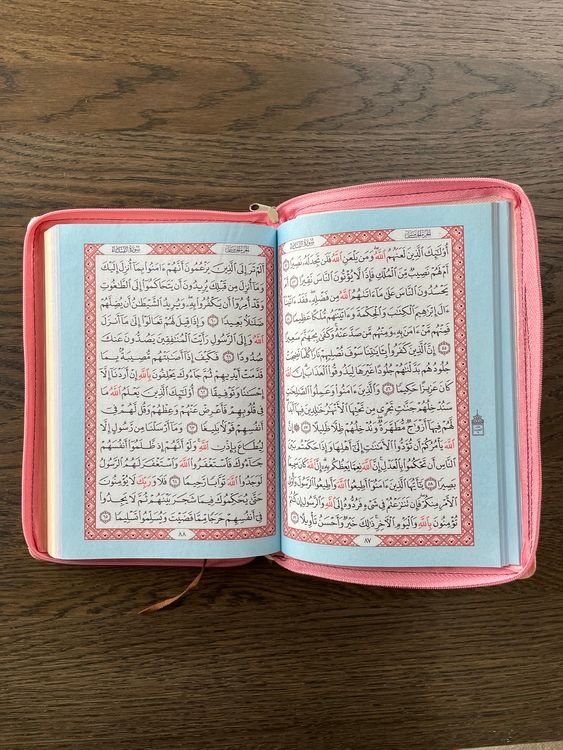 الجُزْءُ الخَامِسُ سُورَةُ النِّسَاءِ
أُوْلَٰٓئِكَ ٱلَّذِينَ لَعَنَهُمُ ٱللَّهُ وَمَن يَلْعَنِ ٱللَّهُ فَلَن تَجِدَ لَهُۥ نَصِيرًا ٥٢
أَمْ لَهُمْ نَصِيبٌ مِّنَ ٱلْمُلْكِ فَإِذًا لَّا يُؤْتُونَ ٱلنَّاسَ نَقِيرًا ٥٣ أَمْ
يَحْسُدُونَ ٱلنَّاسَ عَلَىٰ مَآ ءَاتَىٰهُمُ ٱللَّهُ مِن فَضْلِهِۦ فَقَدْ ءَاتَيْنَآ
ءَالَ إِبْرَٰهِيمَ ٱلْكِتَٰبَ وَٱلْحِكْمَةَ وَءَاتَيْنَٰهُم مُّلْكًا عَظِيمًا ٥٤
فَمِنْهُم مَّنْ ءَامَنَ بِهِۦ وَمِنْهُم مَّن صَدَّ عَنْهُ وَكَفَىٰ بِجَهَنَّمَ سَعِيرًا
٥٥ إِنَّ ٱلَّذِينَ كَفَرُواْ بِـَٔايَٰتِنَا سَوْفَ نُصْلِيهِمْ نَارًا كُلَّمَا نَضِجَتْ
جُلُودُهُم بَدَّلْنَٰهُمْ جُلُودًا غَيْرَهَا لِيَذُوقُواْ ٱلْعَذَابَ إِنَّ ٱللَّهَ
كَانَ عَزِيزًا حَكِيمًا ٥٦ وَٱلَّذِينَ ءَامَنُواْ وَعَمِلُواْ ٱلصَّٰلِحَٰتِ
سَنُدْخِلُهُمْ جَنَّٰتٍ تَجْرِي مِن تَحْتِهَا ٱلْأَنْهَٰرُ خَٰلِدِينَ فِيهَآ أَبَدًا
لَّهُمْ فِيهَآ أَزْوَٰجٌ مُّطَهَّرَةٌ وَنُدْخِلُهُمْ ظِلًّا ظَلِيلًا ٥٧ إِنَّ
ٱللَّهَ يَأْمُرُكُمْ أَن تُؤَدُّواْ ٱلْأَمَٰنَٰتِ إِلَىٰٓ أَهْلِهَا وَإِذَا حَكَمْتُم بَيْنَ
ٱلنَّاسِ أَن تَحْكُمُواْ بِٱلْعَدْلِ إِنَّ ٱللَّهَ نِعِمَّا يَعِظُكُم بِهِۦٓ إِنَّ ٱللَّهَ كَانَ سَمِيعًۢا
بَصِيرًا ٥٨ يَٰٓأَيُّهَا ٱلَّذِينَ ءَامَنُوٓاْ أَطِيعُواْ ٱللَّهَ وَأَطِيعُواْ ٱلرَّسُولَ وَأُوْلِي
ٱلْأَمْرِ مِنكُمْ فَإِن تَنَٰزَعْتُمْ فِي شَيْءٍ فَرُدُّوهُ إِلَى ٱللَّهِ وَٱلرَّسُولِ إِن كُنتُمْ
تُؤْمِنُونَ بِٱللَّهِ وَٱلْيَوْمِ ٱلْأٓخِرِ ذَٰلِكَ خَيْرٌ وَأَحْسَنُ تَأْوِيلًا ٥٩
٨٧
الجُزْءُ الخَامِسُ سُورَةُ النِّسَاءِ
أَلَمْ تَرَ إِلَى ٱلَّذِينَ يَزْعُمُونَ أَنَّهُمْ ءَامَنُواْ بِمَآ أُنزِلَ إِلَيْكَ
وَمَآ أُنزِلَ مِن قَبْلِكَ يُرِيدُونَ أَن يَتَحَاكَمُوٓاْ إِلَى ٱلطَّٰغُوتِ
وَقَدْ أُمِرُوٓاْ أَن يَكْفُرُواْ بِهِۦ وَيُرِيدُ ٱلشَّيْطَٰنُ أَن يُضِلَّهُمْ
ضَلَٰلًۢا بَعِيدًا ٦٠ وَإِذَا قِيلَ لَهُمْ تَعَالَوْاْ إِلَىٰ مَآ أَنزَلَ
ٱللَّهُ وَإِلَى ٱلرَّسُولِ رَأَيْتَ ٱلْمُنَٰفِقِينَ يَصُدُّونَ عَنكَ
صُدُودًا ٦١ فَكَيْفَ إِذَآ أَصَٰبَتْهُم مُّصِيبَةٌۢ بِمَا
قَدَّمَتْ أَيْدِيهِمْ ثُمَّ جَآءُوكَ يَحْلِفُونَ بِٱللَّهِ إِنْ أَرَدْنَآ إِلَّآ
إِحْسَٰنًا وَتَوْفِيقًا ٦٢ أُوْلَٰٓئِكَ ٱلَّذِينَ يَعْلَمُ ٱللَّهُ مَا
فِي قُلُوبِهِمْ فَأَعْرِضْ عَنْهُمْ وَعِظْهُمْ وَقُل لَّهُمْ فِيٓ
أَنفُسِهِمْ قَوْلًۢا بَلِيغًا ٦٣ وَمَآ أَرْسَلْنَا مِن رَّسُولٍ إِلَّا
لِيُطَاعَ بِإِذْنِ ٱللَّهِ وَلَوْ أَنَّهُمْ إِذ ظَّلَمُوٓاْ أَنفُسَهُمْ
جَآءُوكَ فَٱسْتَغْفَرُواْ ٱللَّهَ وَٱسْتَغْفَرَ لَهُمُ ٱلرَّسُولُ
لَوَجَدُواْ ٱللَّهَ تَوَّابًا رَّحِيمًا ٦٤ فَلَا وَرَبِّكَ لَا يُؤْمِنُونَ
حَتَّىٰ يُحَكِّمُوكَ فِيمَا شَجَرَ بَيْنَهُمْ ثُمَّ لَا يَجِدُواْ
فِيٓ أَنفُسِهِمْ حَرَجًا مِّمَّا قَضَيْتَ وَيُسَلِّمُواْ تَسْلِيمًا ٦٥
٨٨